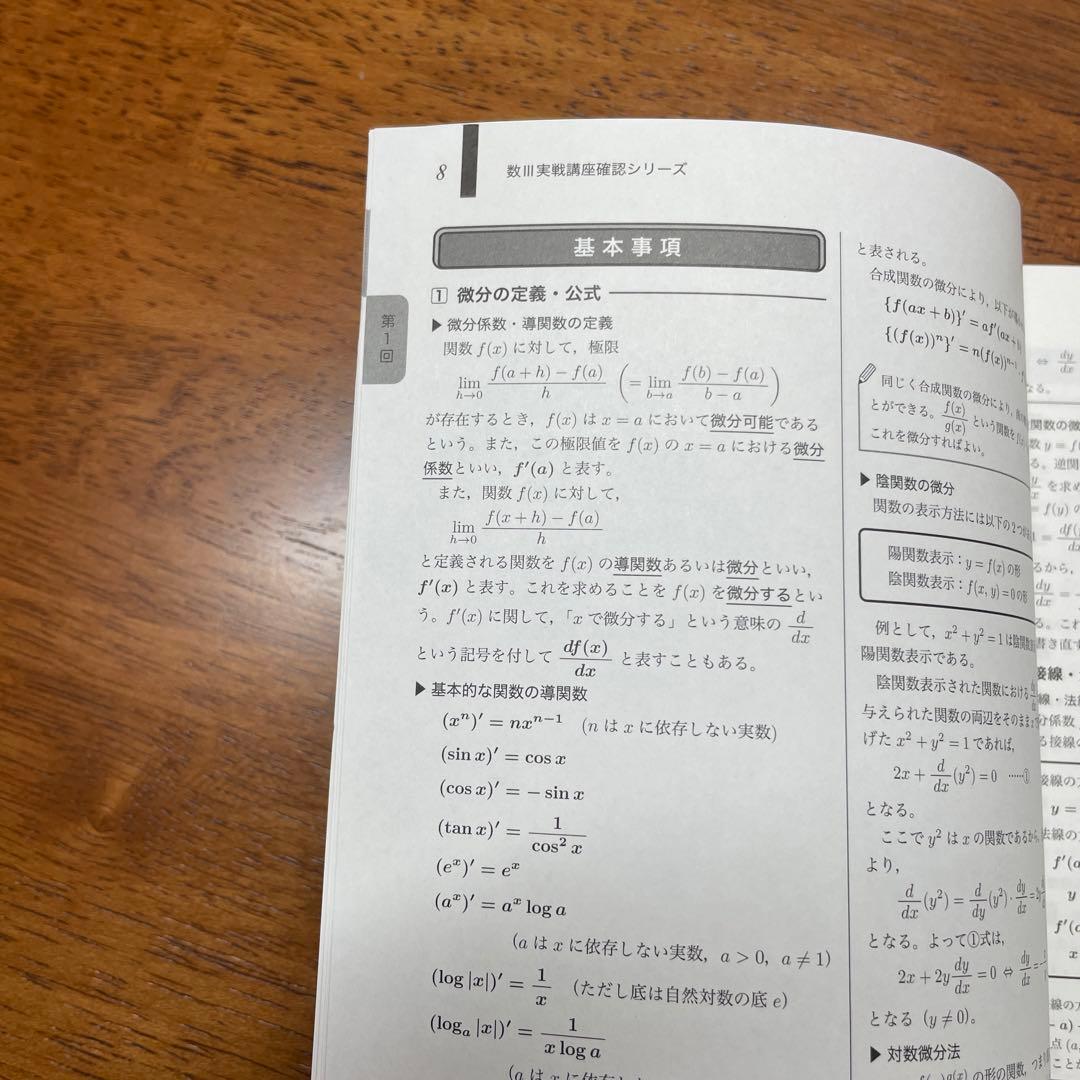 8
数III実戦講座確認シリーズ
第1回
基本事項
1 微分の定義・公式
▶ 微分係数・導関数の定義
関数 f(x) に対して，極限
lim_{h→0} \frac{f(a+h)-f(a)}{h} (= lim_{b→a} \frac{f(b)-f(a)}{b-a})
が存在するとき，f(x) は x = a において微分可能である
という。また，この極限値を f(x) の x = a における微分
係数といい，f′(a) と表す。
また，関数 f(x) に対して，
lim_{h→0} \frac{f(x+h)-f(a)}{h}
と定義される関数を f(x) の導関数あるいは微分といい，
f′(x) と表す。これを求めることを f(x) を微分するとい
う。f′(x) に関して，「x で微分する」という意味の \frac{d}{dx}
という記号を付して \frac{df(x)}{dx} と表すこともある。
▶ 基本的な関数の導関数
(x^n)′ = nx^{n-1} (n は x に依存しない実数)
(sin x)′ = cos x
(cos x)′ = − sin x
(tan x)′ = \frac{1}{cos^2 x}
(e^x)′ = e^x
(a^x)′ = a^x log a
(a は x に依存しない実数，a > 0，a ≠ 1)
(log |x|)′ = \frac{1}{x} (ただし底は自然対数の底 e)
(log_a |x|)′ = \frac{1}{x log a}
(a は x に依存しない
と表される。
合成関数の微分により，以下が
{f(ax + b)}′ = af′(ax +
{(f(x))^n}′ = n(f(x))^{n-1}
同じく合成関数の微分により，
とができる。\frac{f(x)}{g(x)} という関数を
これを微分すればよい。
▶ 陰関数の微分
関数の表示方法には以下の2つが
陽関数表示：y = f(x) の形
陰関数表示：f(x, y) = 0 の形
例として，x^2 + y^2 = 1 は陰関数
陽関数表示である。
陰関数表示された関数における
与えられた関数の両辺をそのまま
げた x^2 + y^2 = 1 であれば，
2x + \frac{d}{dx}(y^2) = 0 ……①
となる。
ここで y^2 は x の関数であるから，
より，
\frac{d}{dx}(y^2) = \frac{d}{dy}(y^2)・\frac{dy}{dx} =
となる。よって①式は，
2x + 2y\frac{dy}{dx} = 0 ⇔ \frac{dy}{dx} = −
となる (y ≠ 0)。
▶ 対数微分法
の形の関数，つま
⇔ \frac{dy}{dx}
なる。
関数の微
数 y = f(
る。逆関
を求め
= f(y) の
るから，
\frac{dy}{dx} = −
る。これ
書き直す
接線・
線・法
分係数
る接線の
接線の方
y =
法線の方
f′(a
y
f′(
x
線の方
− a)
点 (a,
ことが